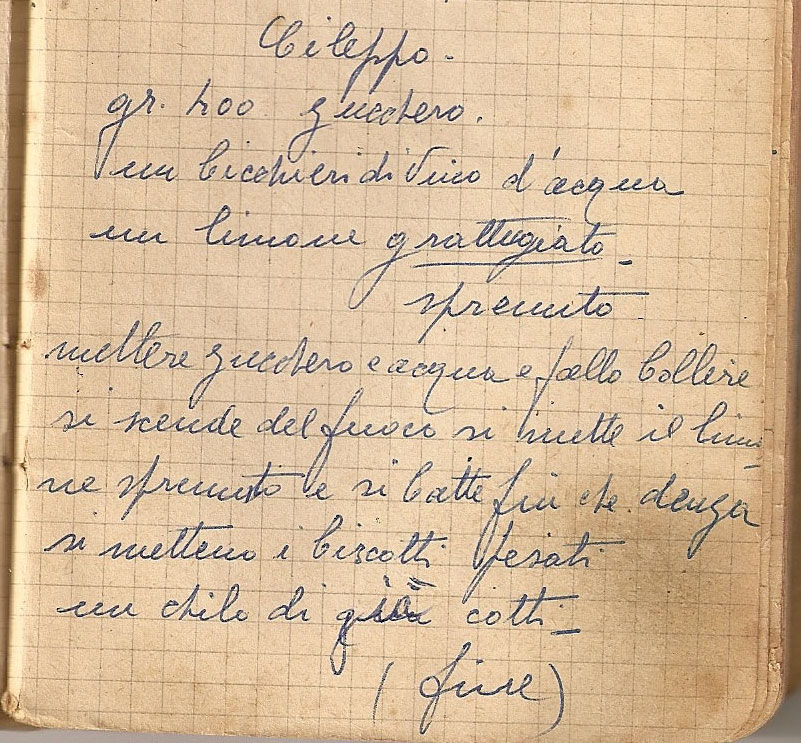 Cileppo -
gr. 400 zucchero.
un bicchieri di vino d'acqua
un limone grattugiato -
spremuto
mettere zucchero e acqua e fallo bollire
si scende del fuoco si mette il limo-
ne spremuto e si batte fin che denza
si metteno i biscotti pesati
un chilo di già cotti -
(fine)